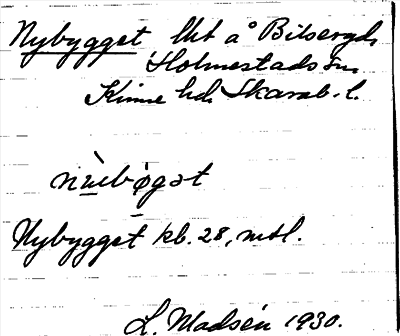 Nybygget lht å Bilsergd.
Holmestads sn
Kinne hd. Skarab. l.
nẁebøgət
Nybygget kb. 28, mtl.
L. Madsén 1930.